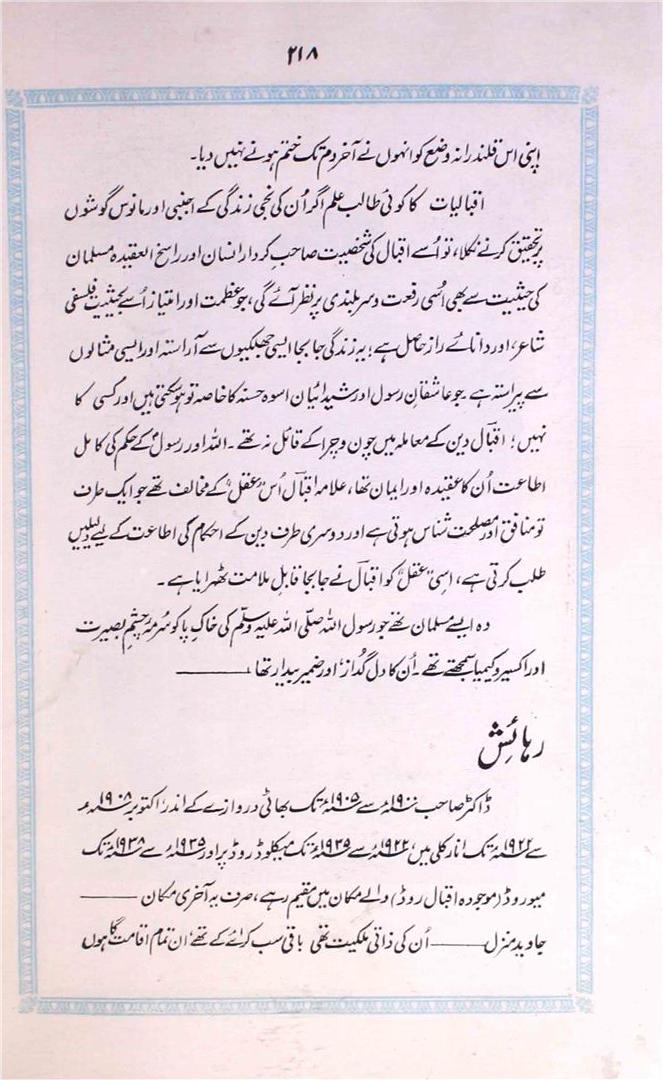 ۲۱۸
اپنی اس قلندرانہ وضع کو انہوں نے آخر دم تک ختم ہونے نہیں دیا۔
اقبالیات کا کوئی طالب علم اگر اُن کی نجی زندگی کے اجنبی اور مانوس گوشوں
پر تحقیق کرنے نکلا، تو اُسے اقبال کی شخصیت صاحبِ کردار انسان اور راسخ العقیدہ مسلمان
کی حیثیت سے بھی اُسی رفعت و سربلندی پر نظر آئے گی، جو عظمت اور امتیاز اُسے بحیثیت فلسفی
شاعر، اور دانائے راز حاصل ہے؛ یہ زندگی جا بجا ایسی جھلکیوں سے آراستہ اور ایسی مثالوں
سے پیراستہ ہے جو عاشقانِ رسول اور شیدائیان اسوہ حسنہ کا خاصہ تو ہو سکتی ہیں اور کسی کا
نہیں؛ اقبالؔ دین کے معاملہ میں چون و چرا کے قائل نہ تھے۔ اللہ اور رسولؐ کے حکم کی کامل
اطاعت اُن کا عقیدہ اور ایمان تھا، علامہ اقبالؔ اُس "عقل" کے مخالف تھے جو ایک طرف
تو منافق اور مصلحت شناس ہوتی ہے اور دوسری طرف دین کے احکام کی اطاعت کے لیے دلیلیں
طلب کرتی ہے، اسی "عقل" کو اقبالؔ نے جا بجا قابلِ ملامت ٹھہرایا ہے۔
وہ ایسے مسلمان تھے جو رسول اللہ صلّی اللہ علیہ وسلّم کی خاکِ پا کو سُرمۂ چشمِ بصیرت
اور اکسیر و کیمیا سمجھتے تھے۔ اُن کا دل گداز، اور ضمیر بیدار تھا، ———
رہائش
ڈاکٹر صاحب ۱۹۰۰ء سے ۱۹۰۵ء تک بھاٹی دروازے کے اندر، اکتوبر ۱۹۰۸ء
سے ۱۹۲۲ء تک انارکلی میں، ۱۹۲۲ء سے ۱۹۳۵ء تک میکلوڈ روڈ پر اور ۱۹۳۵ء سے ۱۹۳۸ء تک
میو روڈ (موجودہ اقبال روڈ) والے مکان میں مقیم رہے، صرف یہ آخری مکان ———
جاوید منزل ——— اُن کی ذاتی ملکیت تھی باقی سب کرائے کے تھے، ان تمام اقامت گاہوں